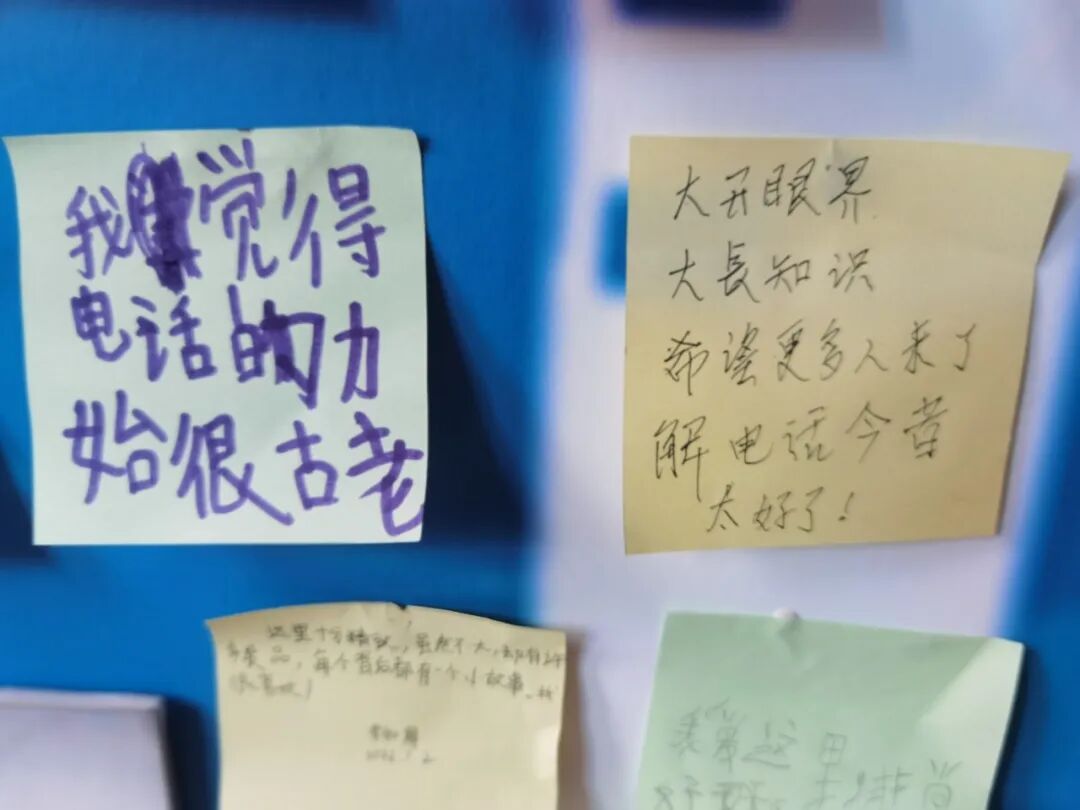 我觉得
电话的力
始很古老
大开眼界
大長知识
希望更多人来了
解电话今昔
太好了!
这里十分精致,虽然不大,却有许
多展品,每个背后都有一个小故事。我
很喜欢!
这里